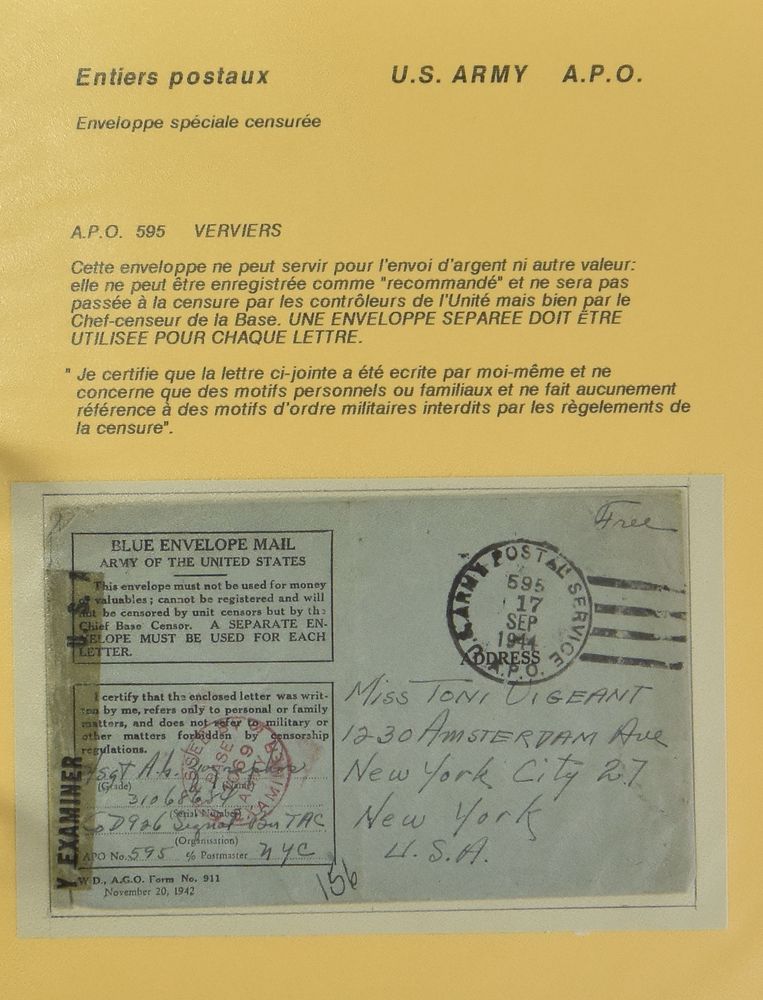 Entiers postaux U.S. ARMY A.P.O.
Enveloppe spéciale censurée
A.P.O. 595 VERVIERS
Cette enveloppe ne peut servir pour l'envoi d'argent ni autre valeur:
elle ne peut être enregistrée comme "recommandé" et ne sera pas
passée à la censure par les contrôleurs de l'Unité mais bien par le
Chef-censeur de la Base. UNE ENVELOPPE SEPAREE DOIT ÊTRE
UTILISEE POUR CHAQUE LETTRE.
" Je certifie que la lettre ci-jointe a été ecrite par moi-même et ne
concerne que des motifs personnels ou familiaux et ne fait aucunement
référence à des motifs d'ordre militaires interdits par les règelements de
la censure".
Free
BLUE ENVELOPE MAIL
ARMY OF THE UNITED STATES
This envelope must not be used for money
valuables; cannot be registered and will
not be censored by unit censors but by the
Chief Base Censor. A SEPARATE EN-
VELOPE MUST BE USED FOR EACH
LETTER.
U.S. ARMY POSTAL SERVICE
595
17
SEP
1944
A.P.O.
ADDRESS
I certify that the enclosed letter was writ-
ten by me, refers only to personal or family
matters, and does not refer to military or
other matters forbidden by censorship
regulations.
(Grade)
31068684
(Serial Number)
Co D 926 Signal Bn TAC
(Organisation)
APO No. 595 % Postmaster NYC
W.D., A.G.O. Form No. 911
November 20, 1942
BASE
Y EXAMINER
Miss Toni Vigeant
1230 Amsterdam Ave
New York City 27
New York
U.S.A.
156